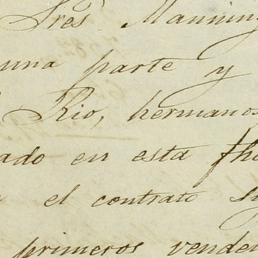 Sres Manning
una parte y
Rio, hermanos
ado en esta fha
el contrato
primeros vende